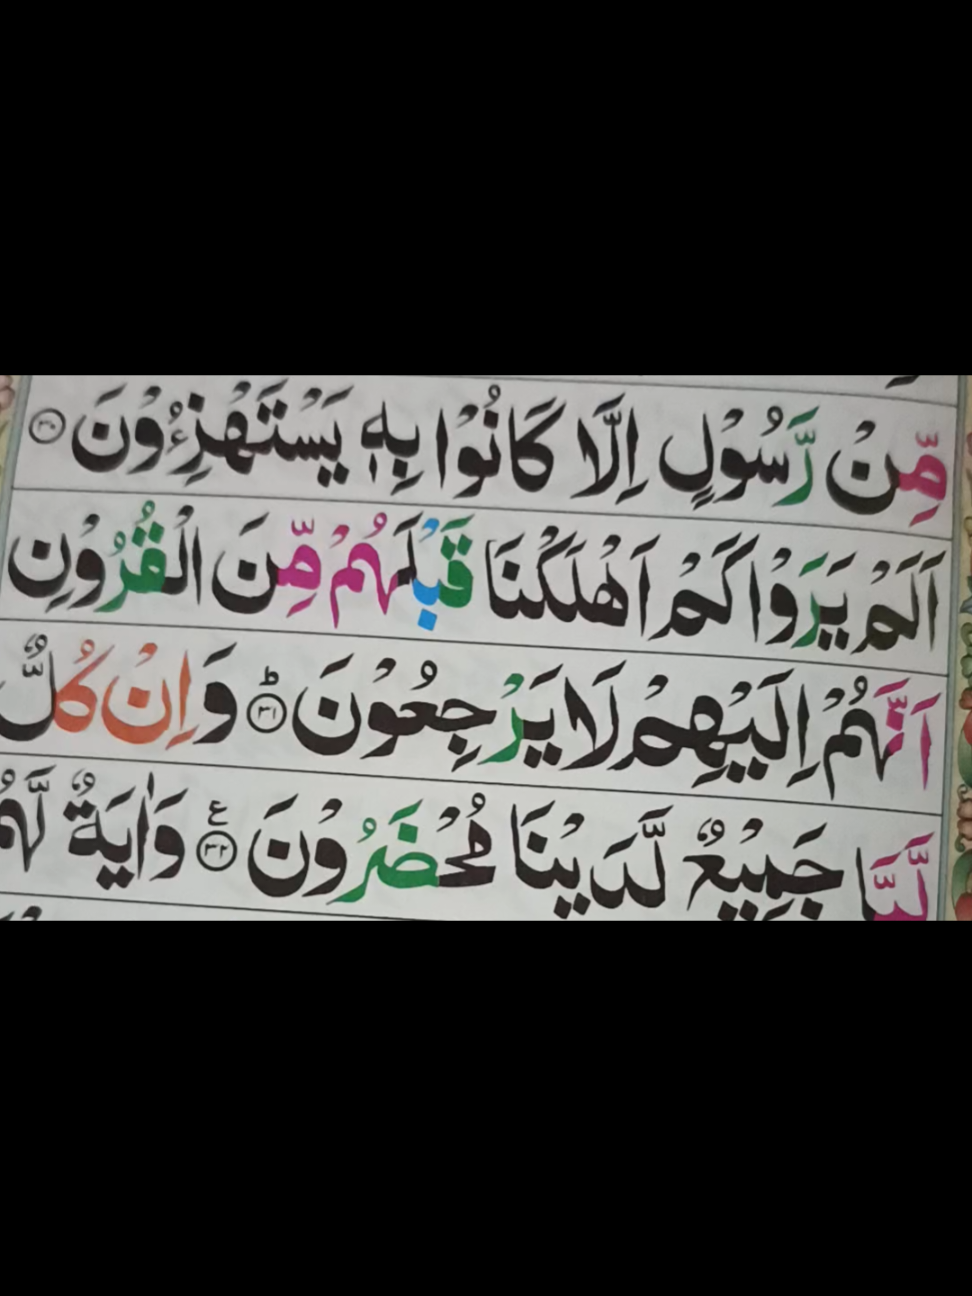 مِّنْ رَّسُوْلٍ اِلَّا كَانُوْا بِهٖ يَسْتَهْزِءُوْنَ ۝۳۰
اَلَمْ يَرَوْا كَمْ اَهْلَكْنَا قَبْلَهُمْ مِّنَ الْقُرُوْنِ
اَنَّهُمْ اِلَيْهِمْ لَا يَرْجِعُوْنَ ؕ ۝۳۱ وَاِنْ كُلٌّ
لَّمَّا جَمِيْعٌ لَّدَيْنَا مُحْضَرُوْنَ ۝۳۲ ع وَاٰيَةٌ لَّهُمُ